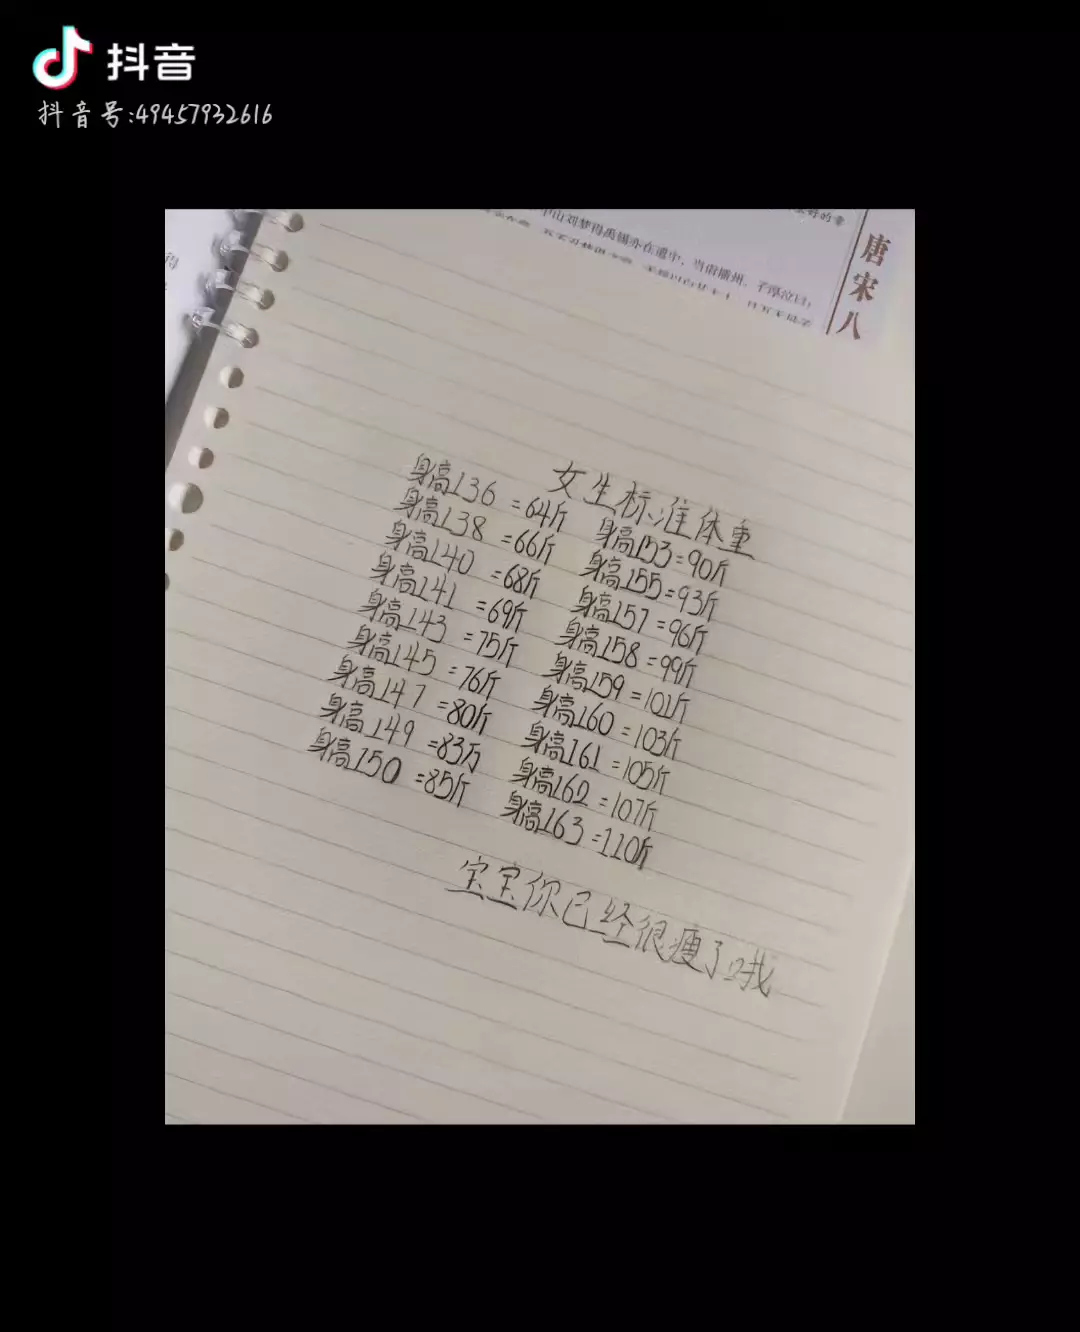 抖音
抖音号:49457932616
唐宋八
女生标准体重
身高136=64斤
身高138=66斤
身高140=68斤
身高141=69斤
身高143=75斤
身高145=76斤
身高147=80斤
身高149=83万
身高150=85斤
身高153=90斤
身高155=93斤
身高157=96斤
身高158=99斤
身高159=101斤
身高160=103斤
身高161=105斤
身高162=107斤
身高163=110斤
宝宝你已经很瘦了哦